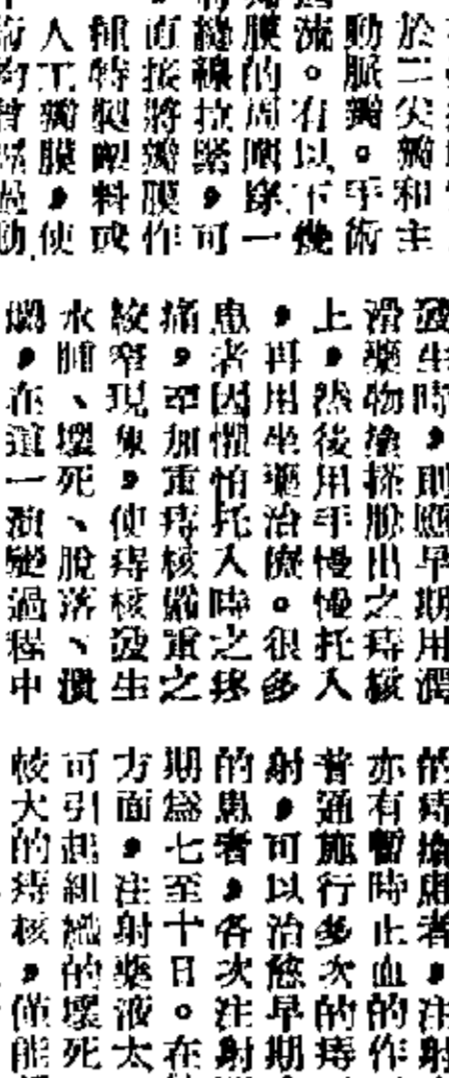 於二尖瓣和主
動脈瓣。手術
流。有以下幾
膜的周圍,穿一
縫線拉緊,可
直接將瓣膜作
種特製塑料或
人工瓣膜,使
發生時,則應早期用潤
滑藥物塗搽脫出之痔核
上,然後用手慢慢托入
,再用坐藥治療。很多
患者因懼怕托入時之疼
痛,至加重痔核嚴重之
絞窄現象,使痔核發生
水腫、壞死、脫落、潰
爛,在這一演變過程中
的痔瘡患者,注射
亦有暫時止血的作
普通施行多次的痔
射,可以治癒早期
的患者,各次注射
期為七至十日。在
方面,注射藥液太
可引起組織的壞死
較大的痔核,僅能